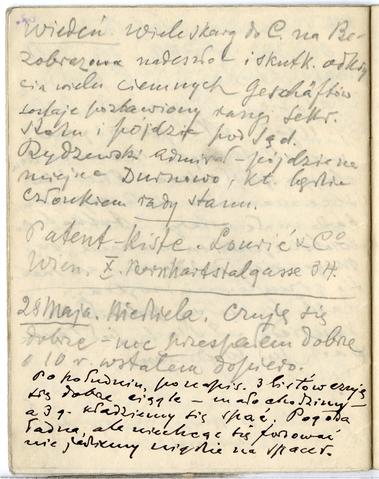 Wiedeń. Wiele skarg do C. na Be-
zobrazowa nadeszło i skutk. odkry
cia wielu ciemnych Geschäftów
zostaje pozbawiony rangi Sekr.
Stanu i pójdzie pod Sąd.
Rydzewski admirał – pójdzie na
miejsce Durnowo, kt. będzie
członkiem rady stanu.
Patent-Kiste. Lourié & Co
Wien. X. Bernhartstalgasse 34.
28 Maja. Niedziela. Czuję się
dobrze – noc przespałem dobrze
o 10 r. wstałem dopiero.
Po południu, po napis. 3 listów czuję
się dobrze ciągle – mało chodzimy –
a 3 g. kładziemy się spać. Pogoda
ładna, ale niechcąc się forsować
nie jedziemy nigdzie na spacer.